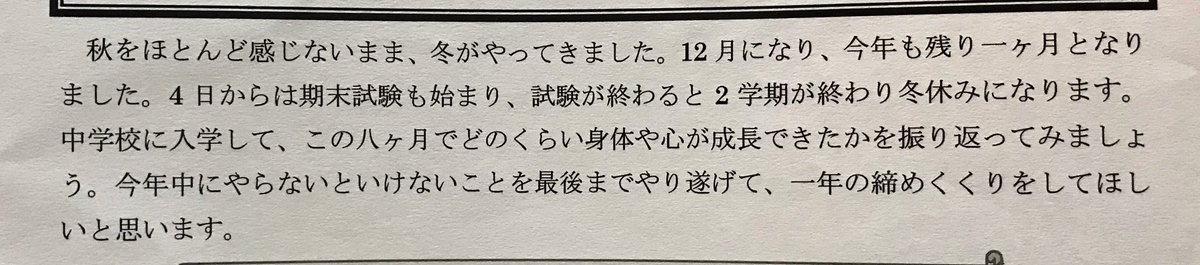 秋をほとんど感じないまま、冬がやってきました。12月になり、今年も残り一ヶ月となり
ました。4日からは期末試験も始まり、試験が終わると2学期が終わり冬休みになります。
中学校に入学して、この八ヶ月でどのくらい身体や心が成長できたかを振り返ってみましょ
う。今年中にやらないといけないことを最後までやり遂げて、一年の締めくくりをしてほし
いと思います。